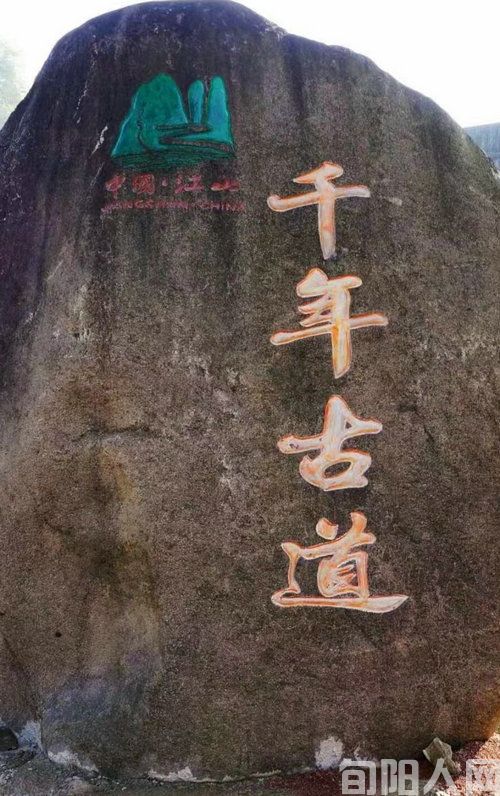 中国·江山
JIANGSHAN·CHINA
千年古道
旬阳人网